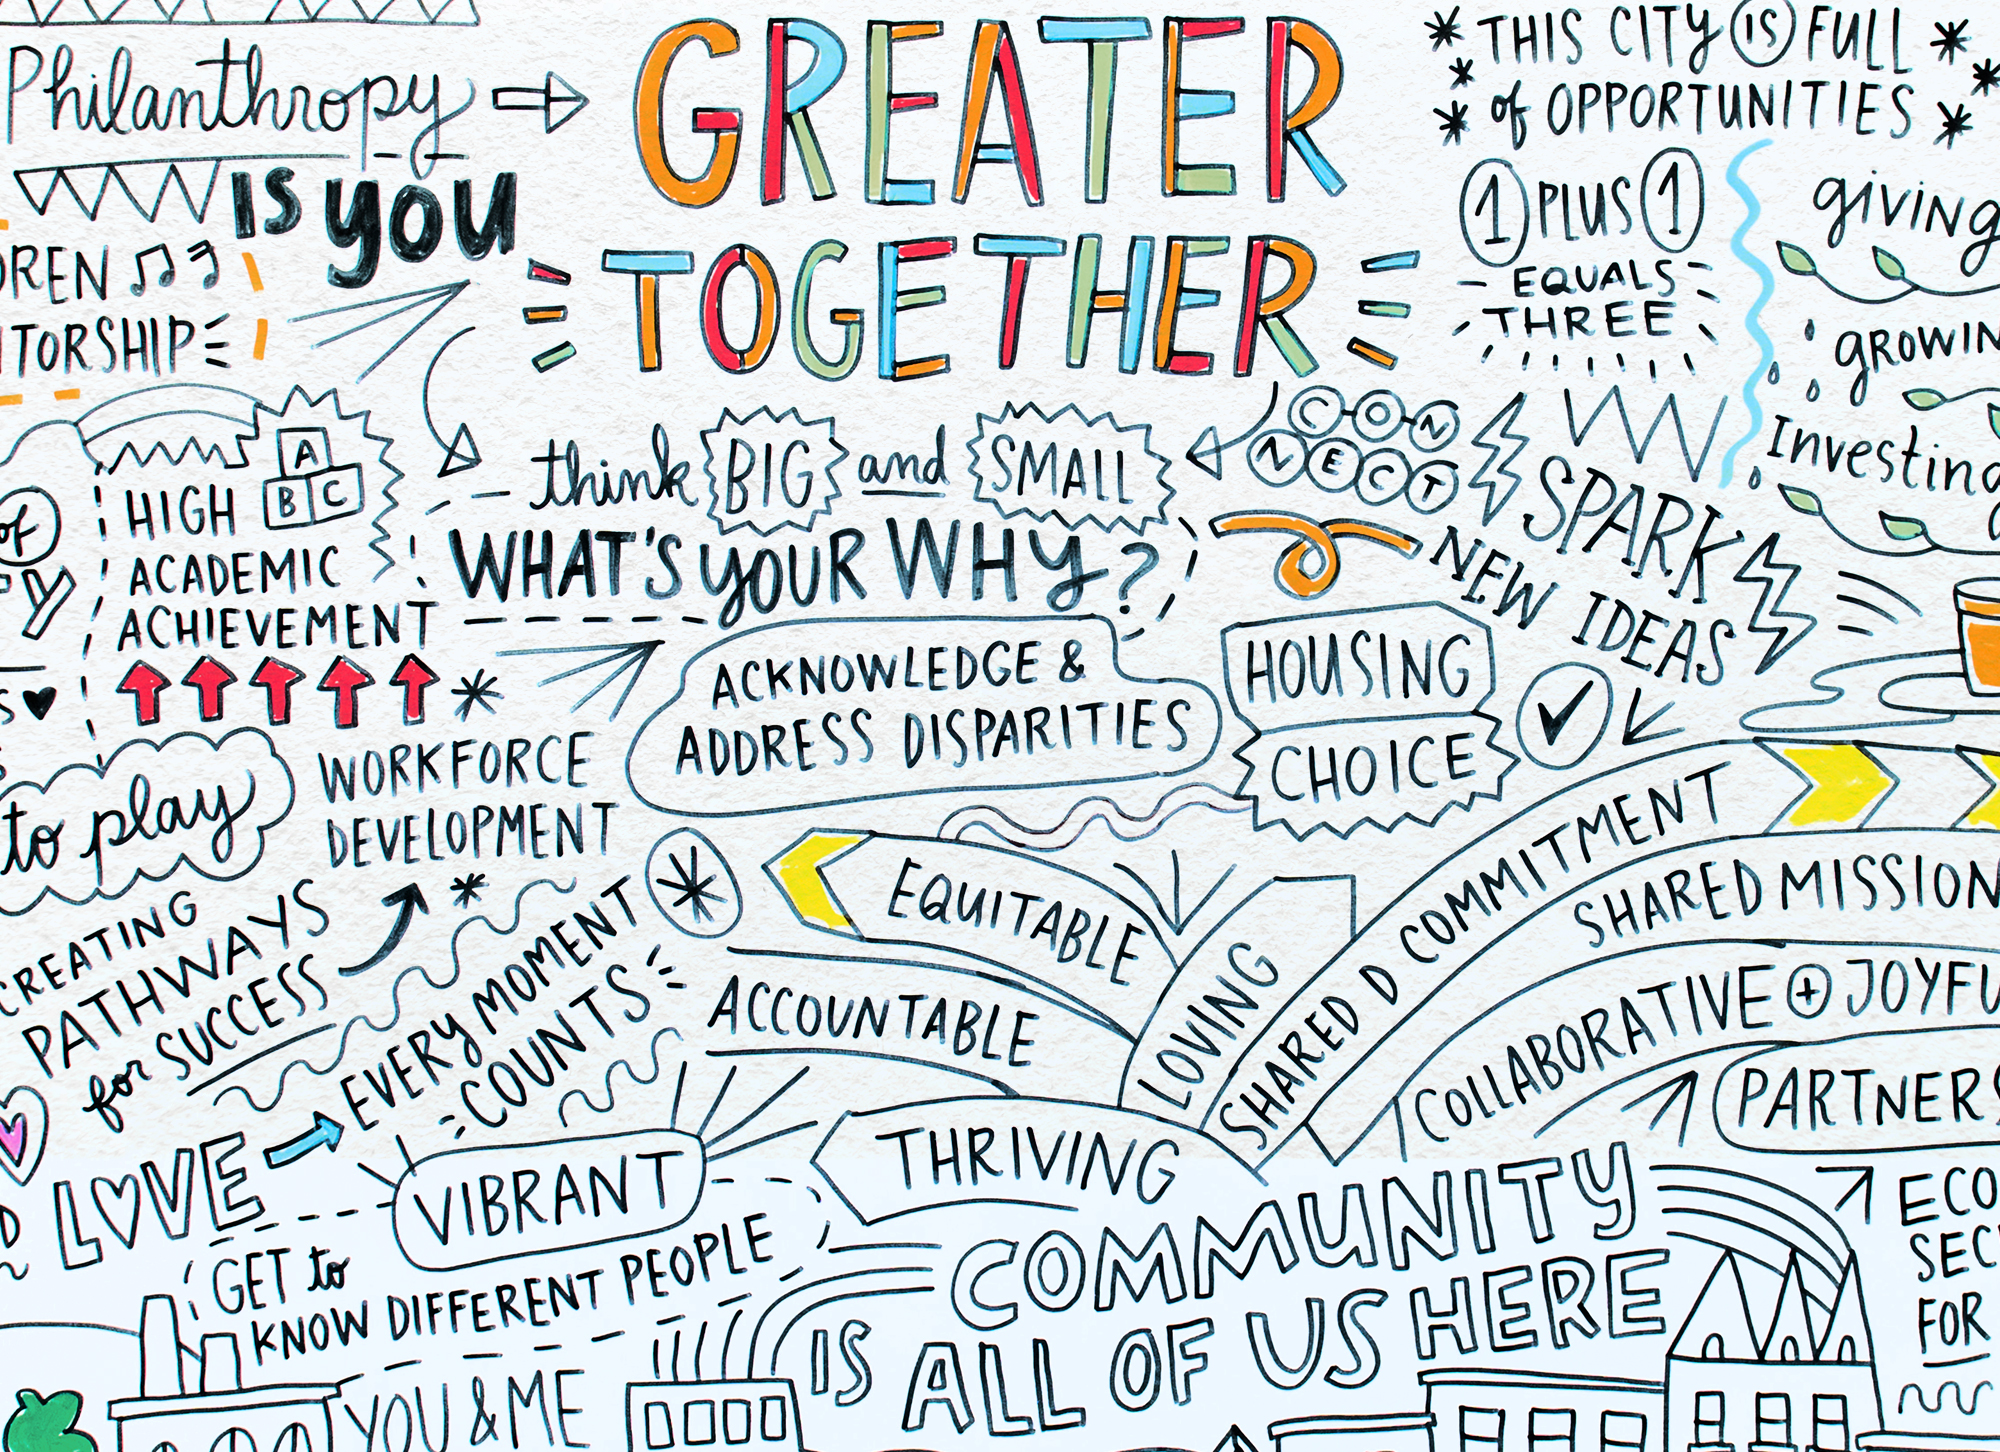 Philanthropy
IS YOU
GREATER
TOGETHER
THIS CITY IS FULL
of OPPORTUNITIES
1 PLUS 1
EQUALS
THREE
giving
GROWIN
Investing
OREN
ITORSHIP
think BIG and SMALL
CONNECT
WHAT'S YOUR WHY?
SPARK
NEW IDEAS
of
A
B C
HIGH
ACADEMIC
ACHIEVEMENT
ACKNOWLEDGE &
ADDRESS DISPARITIES
HOUSING
CHOICE
to play
WORKFORCE
DEVELOPMENT
CREATING
PATHWAYS
for SUCCESS
EVERY MOMENT
COUNTS
EQUITABLE
ACCOUNTABLE
LOVING
SHARED D COMMITMENT
SHARED MISSION
COLLABORATIVE + JOYFU
PARTNERS
THRIVING
LOVE
VIBRANT
GET to
KNOW DIFFERENT PEOPLE
YOU & ME
COMMUNITY
IS ALL OF US HERE
ECO
SEC
FOR